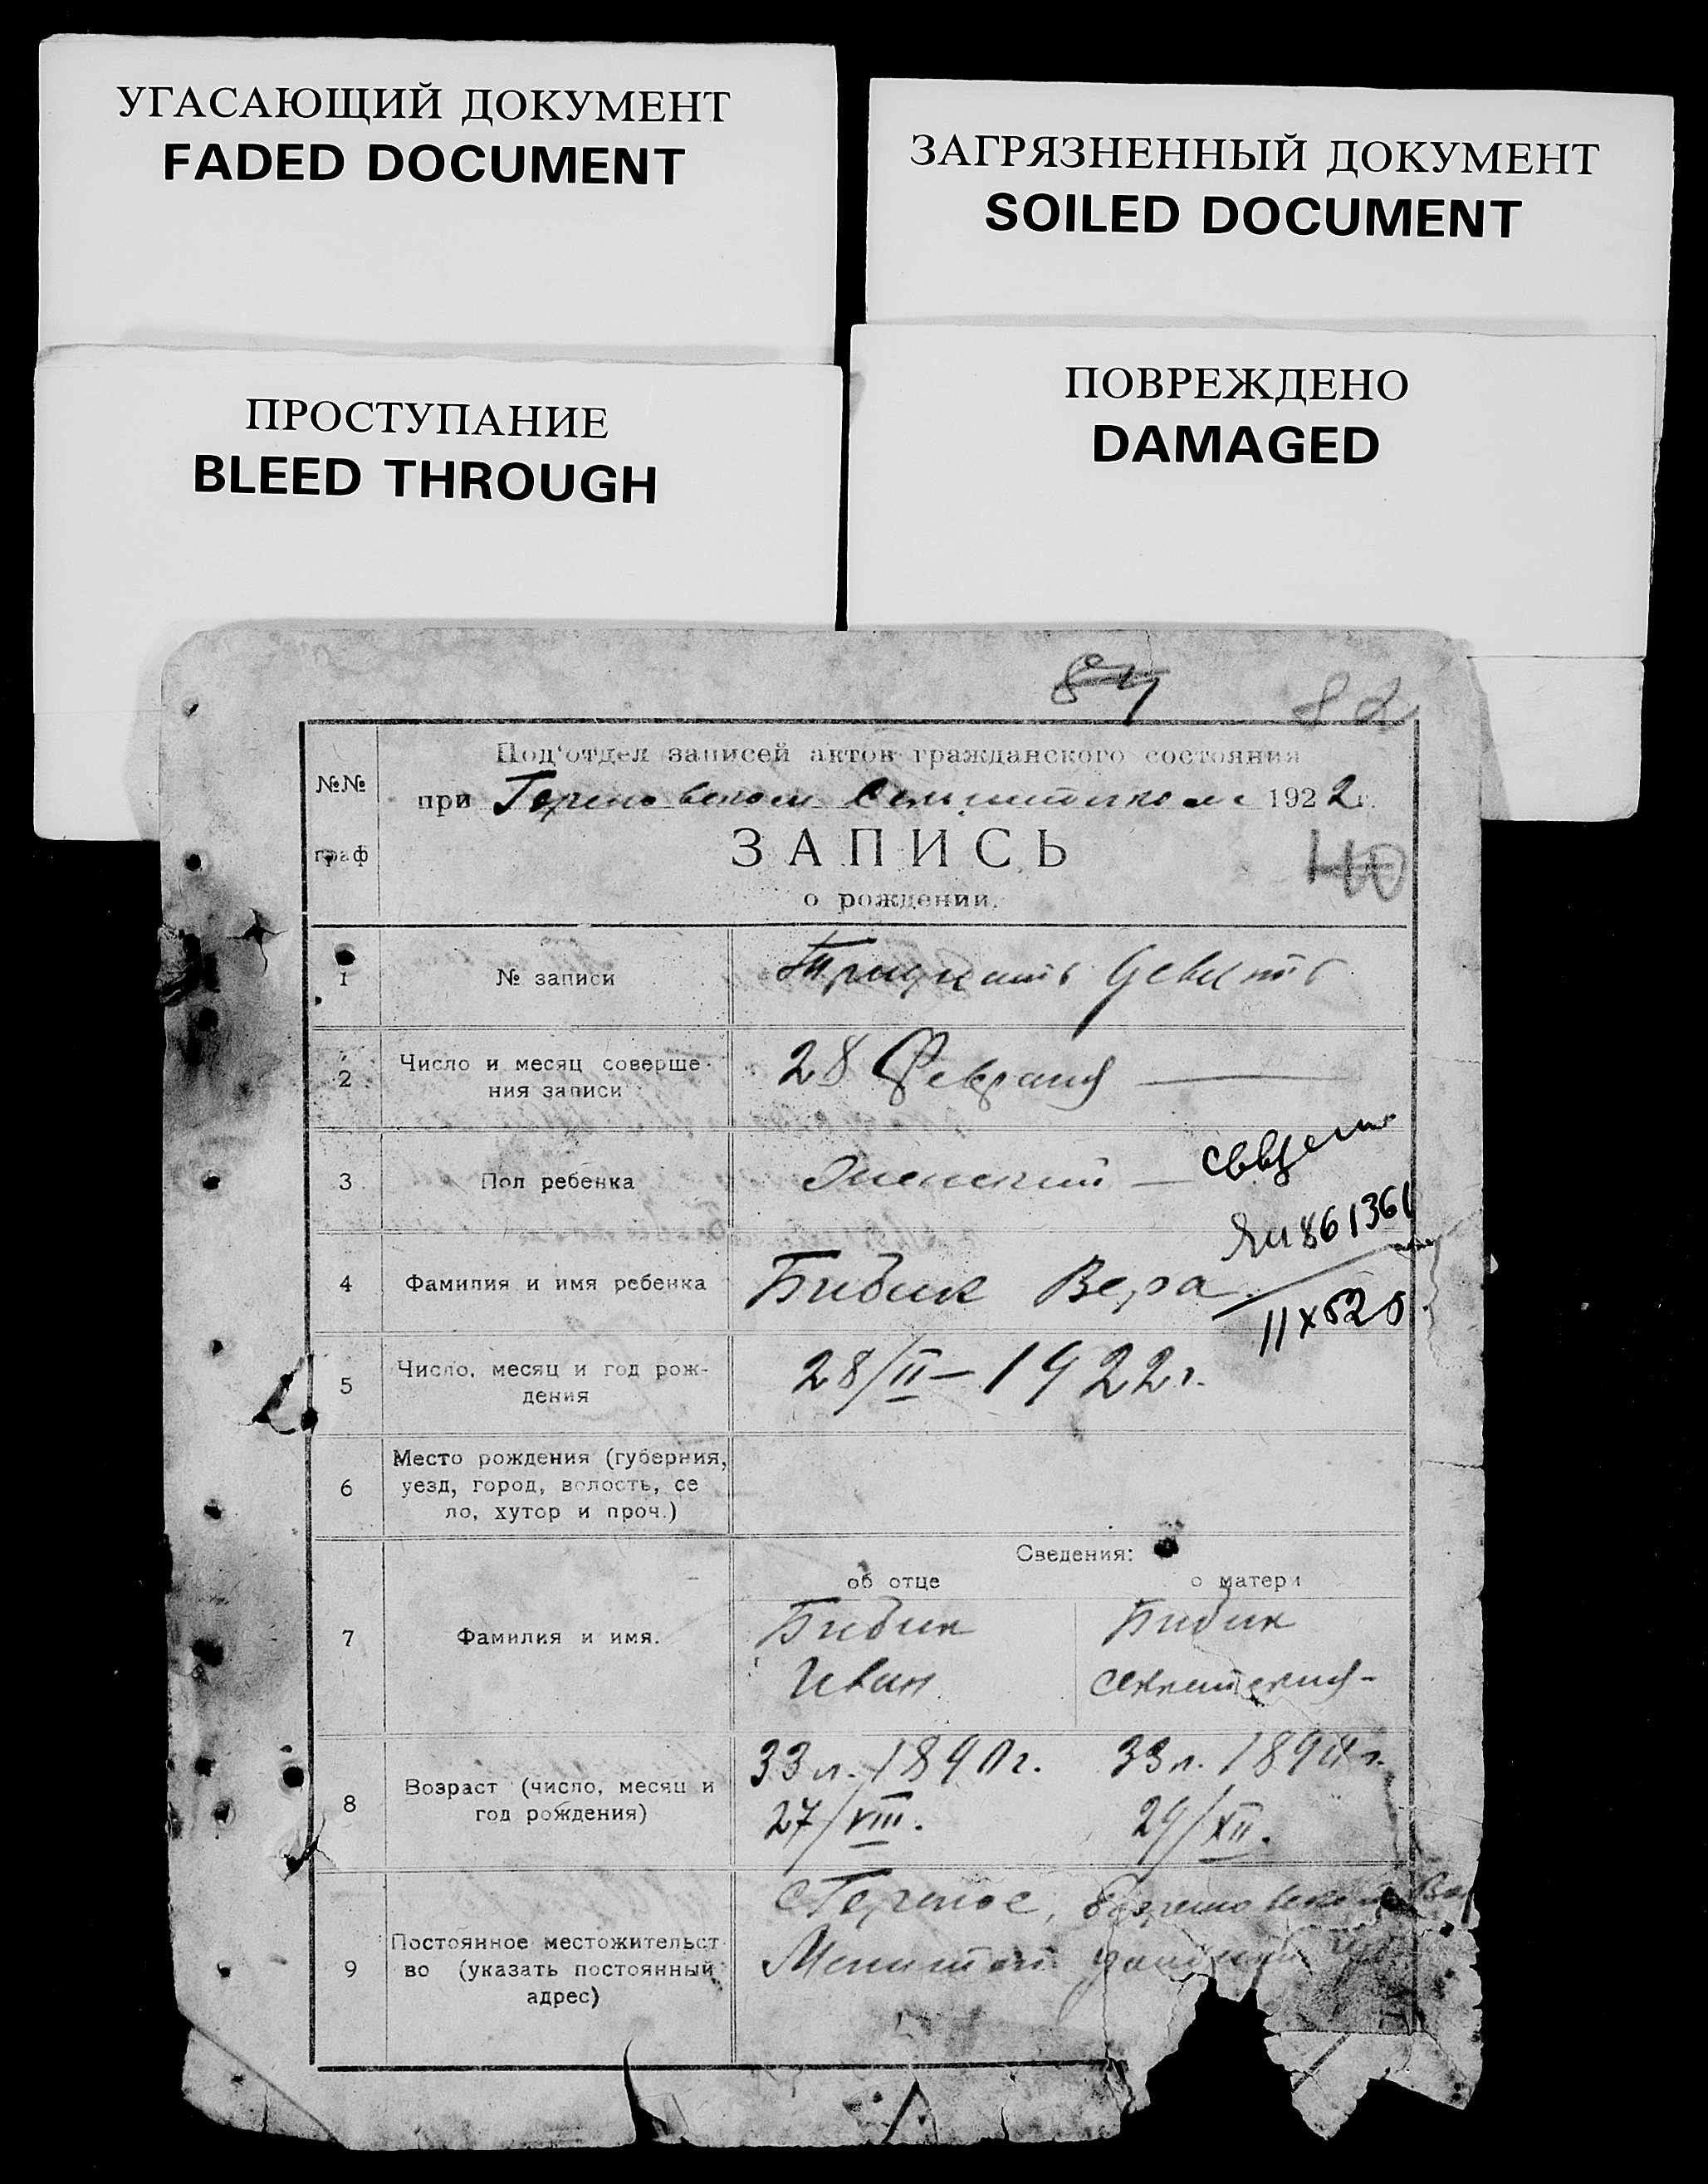 УГАСАЮЩИЙ ДОКУМЕНТ
FADED DOCUMENT
ЗАГРЯЗНЕННЫЙ ДОКУМЕНТ
SOILED DOCUMENT
ПРОСТУПАНИЕ
BLEED THROUGH
ПОВРЕЖДЕНО
DAMAGED
84
82
№№
граф
Под'отдел записей актов гражданского состояния
при 1922 г.
ЗАПИСЬ
40
о рождении.
1 № записи Тридцать девять
2 Число и месяц соверше-
ния записи 28 Февраля
3 Пол ребенка Женский
861361
4 Фамилия и имя ребенка Бибик Вера
5 Число, месяц и год рож-
дения 28/II–1922г.
6 Место рождения (губерния,
уезд, город, волость, се
ло, хутор и проч.)
Сведения:
об отце о матери
7 Фамилия и имя. Бибик Бибик
Иван
8 Возраст (число, месяц и
год рождения) 33л. 33л.
27/VIII. 29/XII.
9 Постоянное местожительст
во (указать постоянный
адрес)